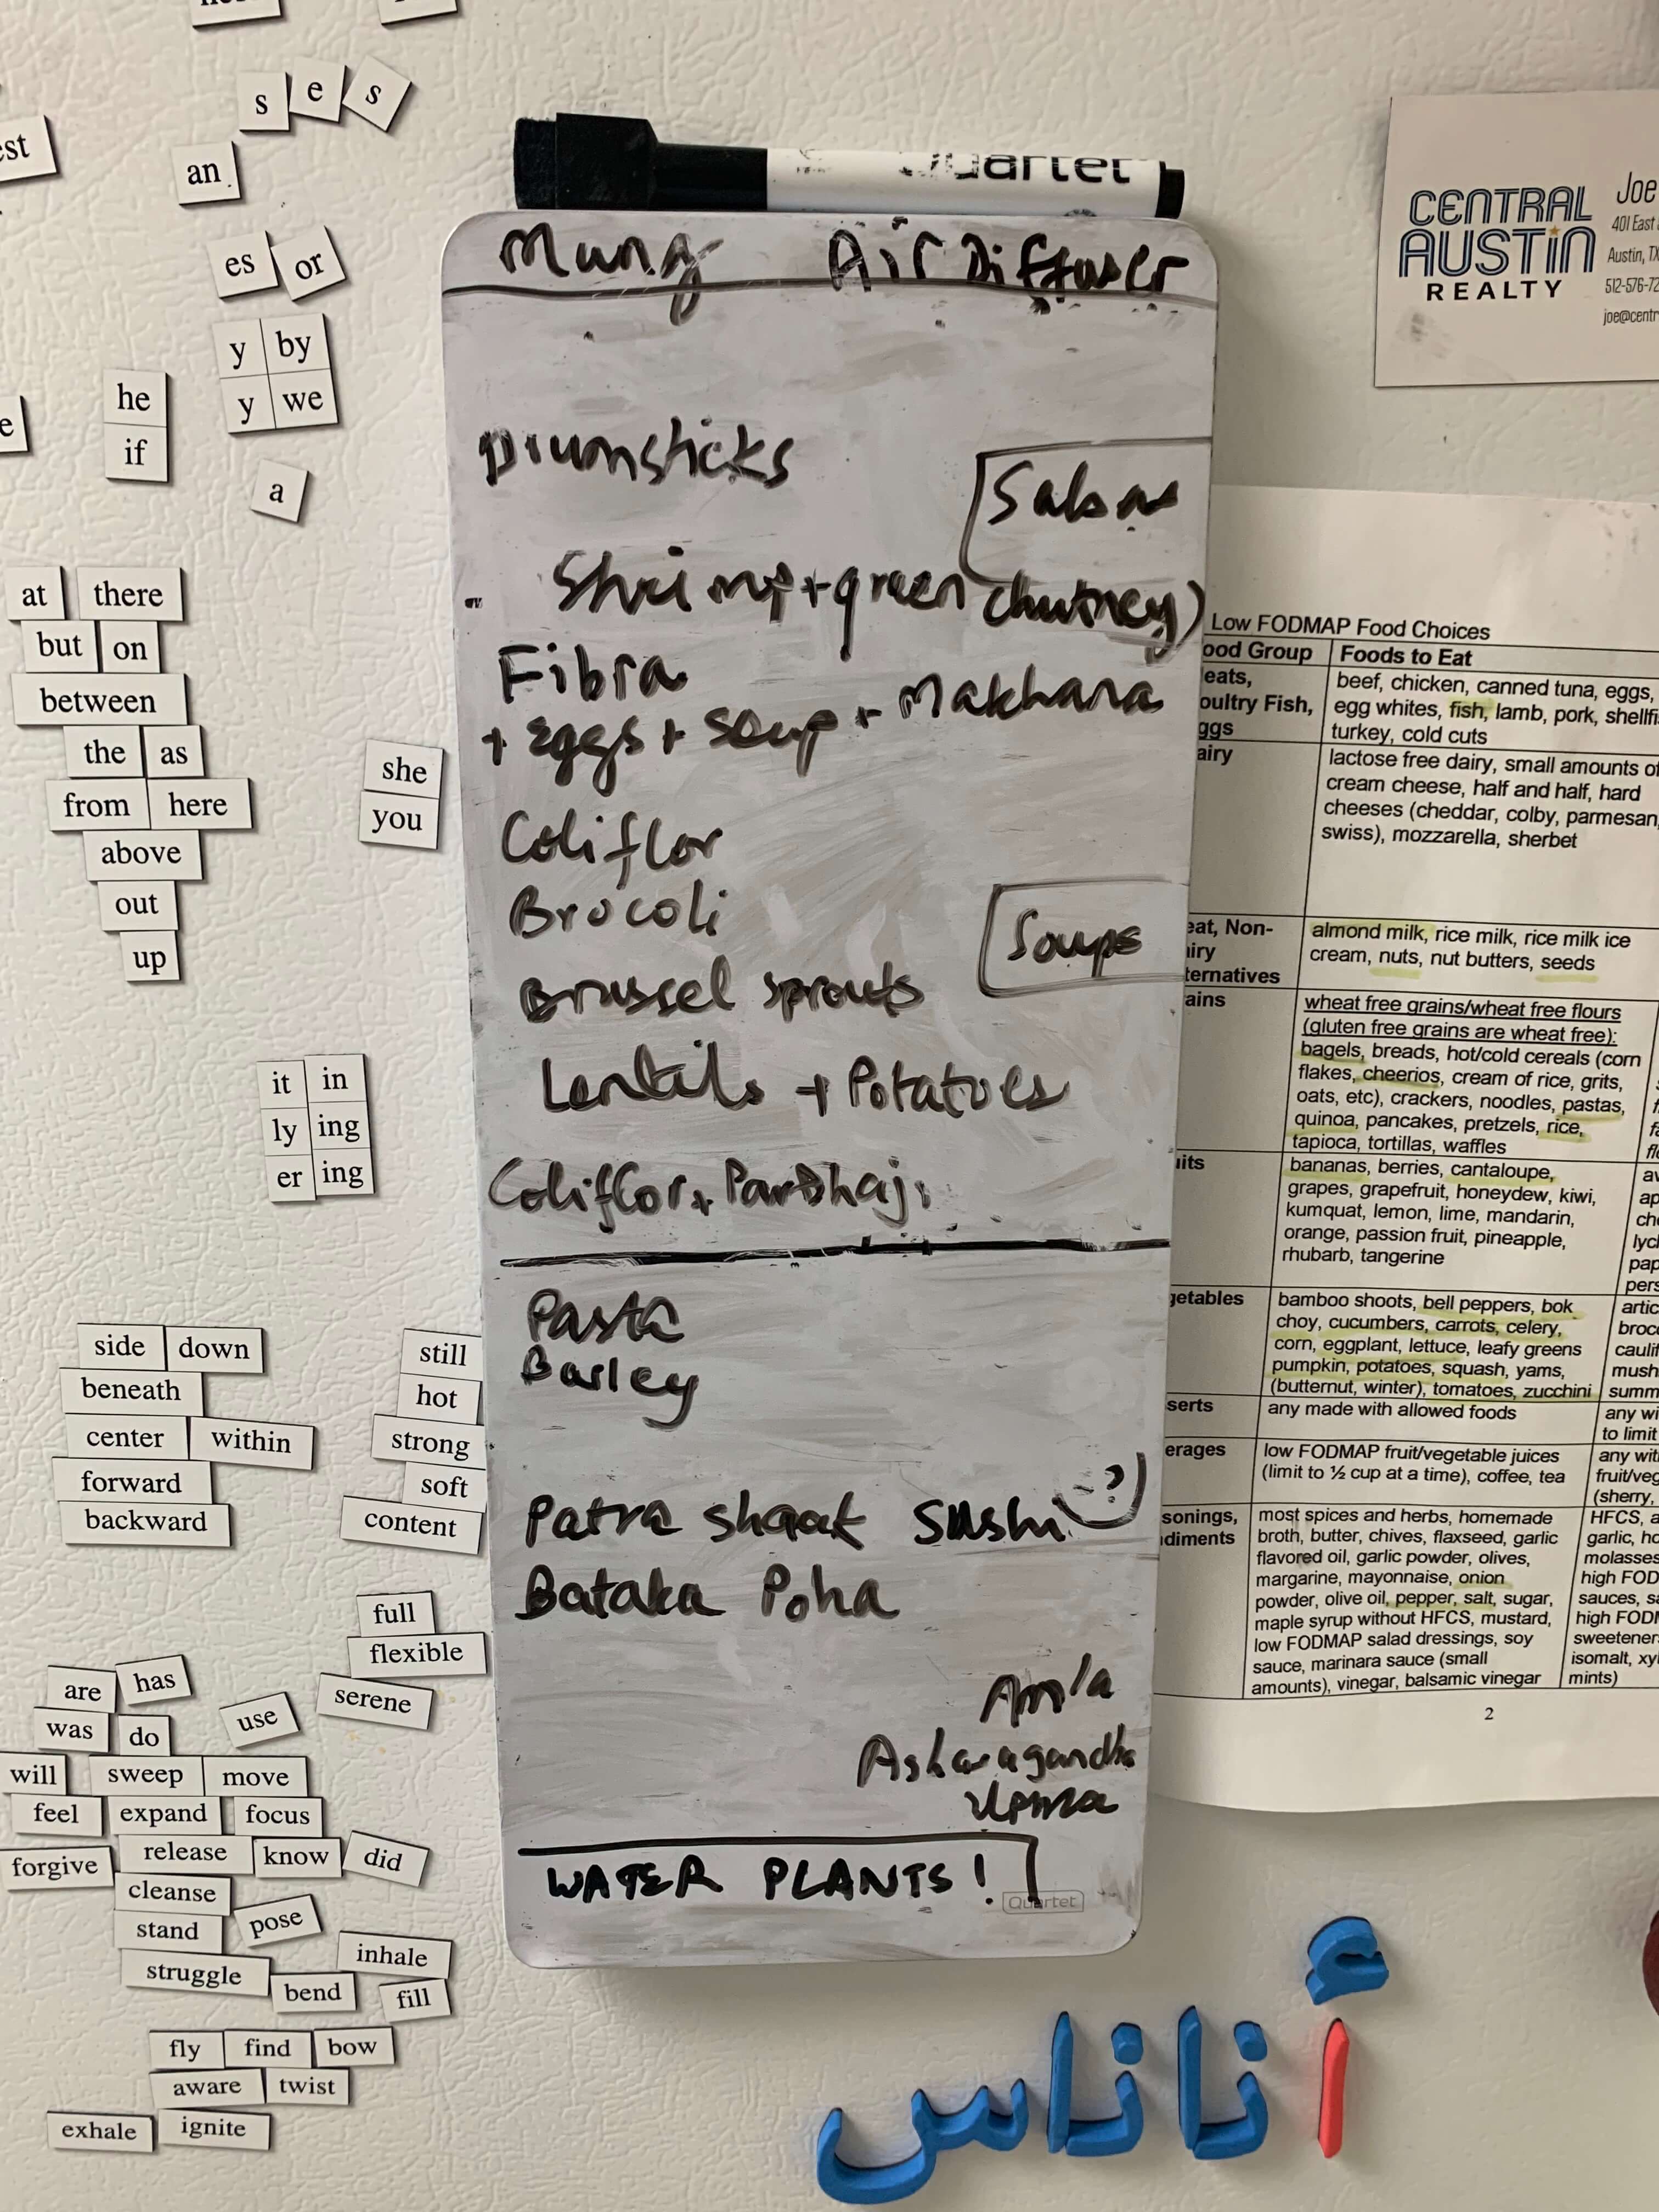 s e s
est
an
es or
y by
y we
he
if
a
at there
but on
between
the as
from here
above
out
up
she
you
it in
ly ing
er ing
side down
beneath
center within
forward
backward
still
hot
strong
soft
content
full
flexible
serene
are has
was do use
will sweep move
feel expand focus
forgive release know did
cleanse
stand pose
struggle inhale
bend fill
fly find bow
aware twist
exhale ignite
Quartet
Mung Air Diffuser
Drumsticks
Sabar
Shrimp + green chutney)
Fibra
+ Eggs + Soup + Makhana
Coliflor
Brocoli
Soups
Brussel sprouts
Lentils + Potatoes
Coliflor + PavBhaji
Pasta
Barley
Patra shaak Sushi
Bataka Poha
Amla
Ashwagandha
Upma
WATER PLANTS!
Quartet
CENTRAL
AUSTIN
REALTY
Joe
401 East
Austin, TX
512-576-72
joe@centr
Low FODMAP Food Choices
ood Group Foods to Eat
eats, beef, chicken, canned tuna, eggs,
oultry Fish, egg whites, fish, lamb, pork, shellfi
ggs turkey, cold cuts
airy lactose free dairy, small amounts of
cream cheese, half and half, hard
cheeses (cheddar, colby, parmesan,
swiss), mozzarella, sherbet
eat, Non- almond milk, rice milk, rice milk ice
iry cream, nuts, nut butters, seeds
ternatives
ains wheat free grains/wheat free flours
(gluten free grains are wheat free):
bagels, breads, hot/cold cereals (corn
flakes, cheerios, cream of rice, grits,
oats, etc), crackers, noodles, pastas,
quinoa, pancakes, pretzels, rice,
tapioca, tortillas, waffles
uits bananas, berries, cantaloupe, av
grapes, grapefruit, honeydew, kiwi, ap
kumquat, lemon, lime, mandarin, ch
orange, passion fruit, pineapple, lyc
rhubarb, tangerine pap
pers
getables bamboo shoots, bell peppers, bok artic
choy, cucumbers, carrots, celery, broc
corn, eggplant, lettuce, leafy greens caulif
pumpkin, potatoes, squash, yams, mush
(butternut, winter), tomatoes, zucchini summ
serts any made with allowed foods any wi
to limit
erages low FODMAP fruit/vegetable juices any wit
(limit to ½ cup at a time), coffee, tea fruit/veg
(sherry,
sonings, most spices and herbs, homemade HFCS, a
diments broth, butter, chives, flaxseed, garlic garlic, ho
flavored oil, garlic powder, olives, molasses
margarine, mayonnaise, onion high FOD
powder, olive oil, pepper, salt, sugar, sauces, sa
maple syrup without HFCS, mustard, high FODM
low FODMAP salad dressings, soy sweetener
sauce, marinara sauce (small isomalt, xy
amounts), vinegar, balsamic vinegar mints)
2
أناناس